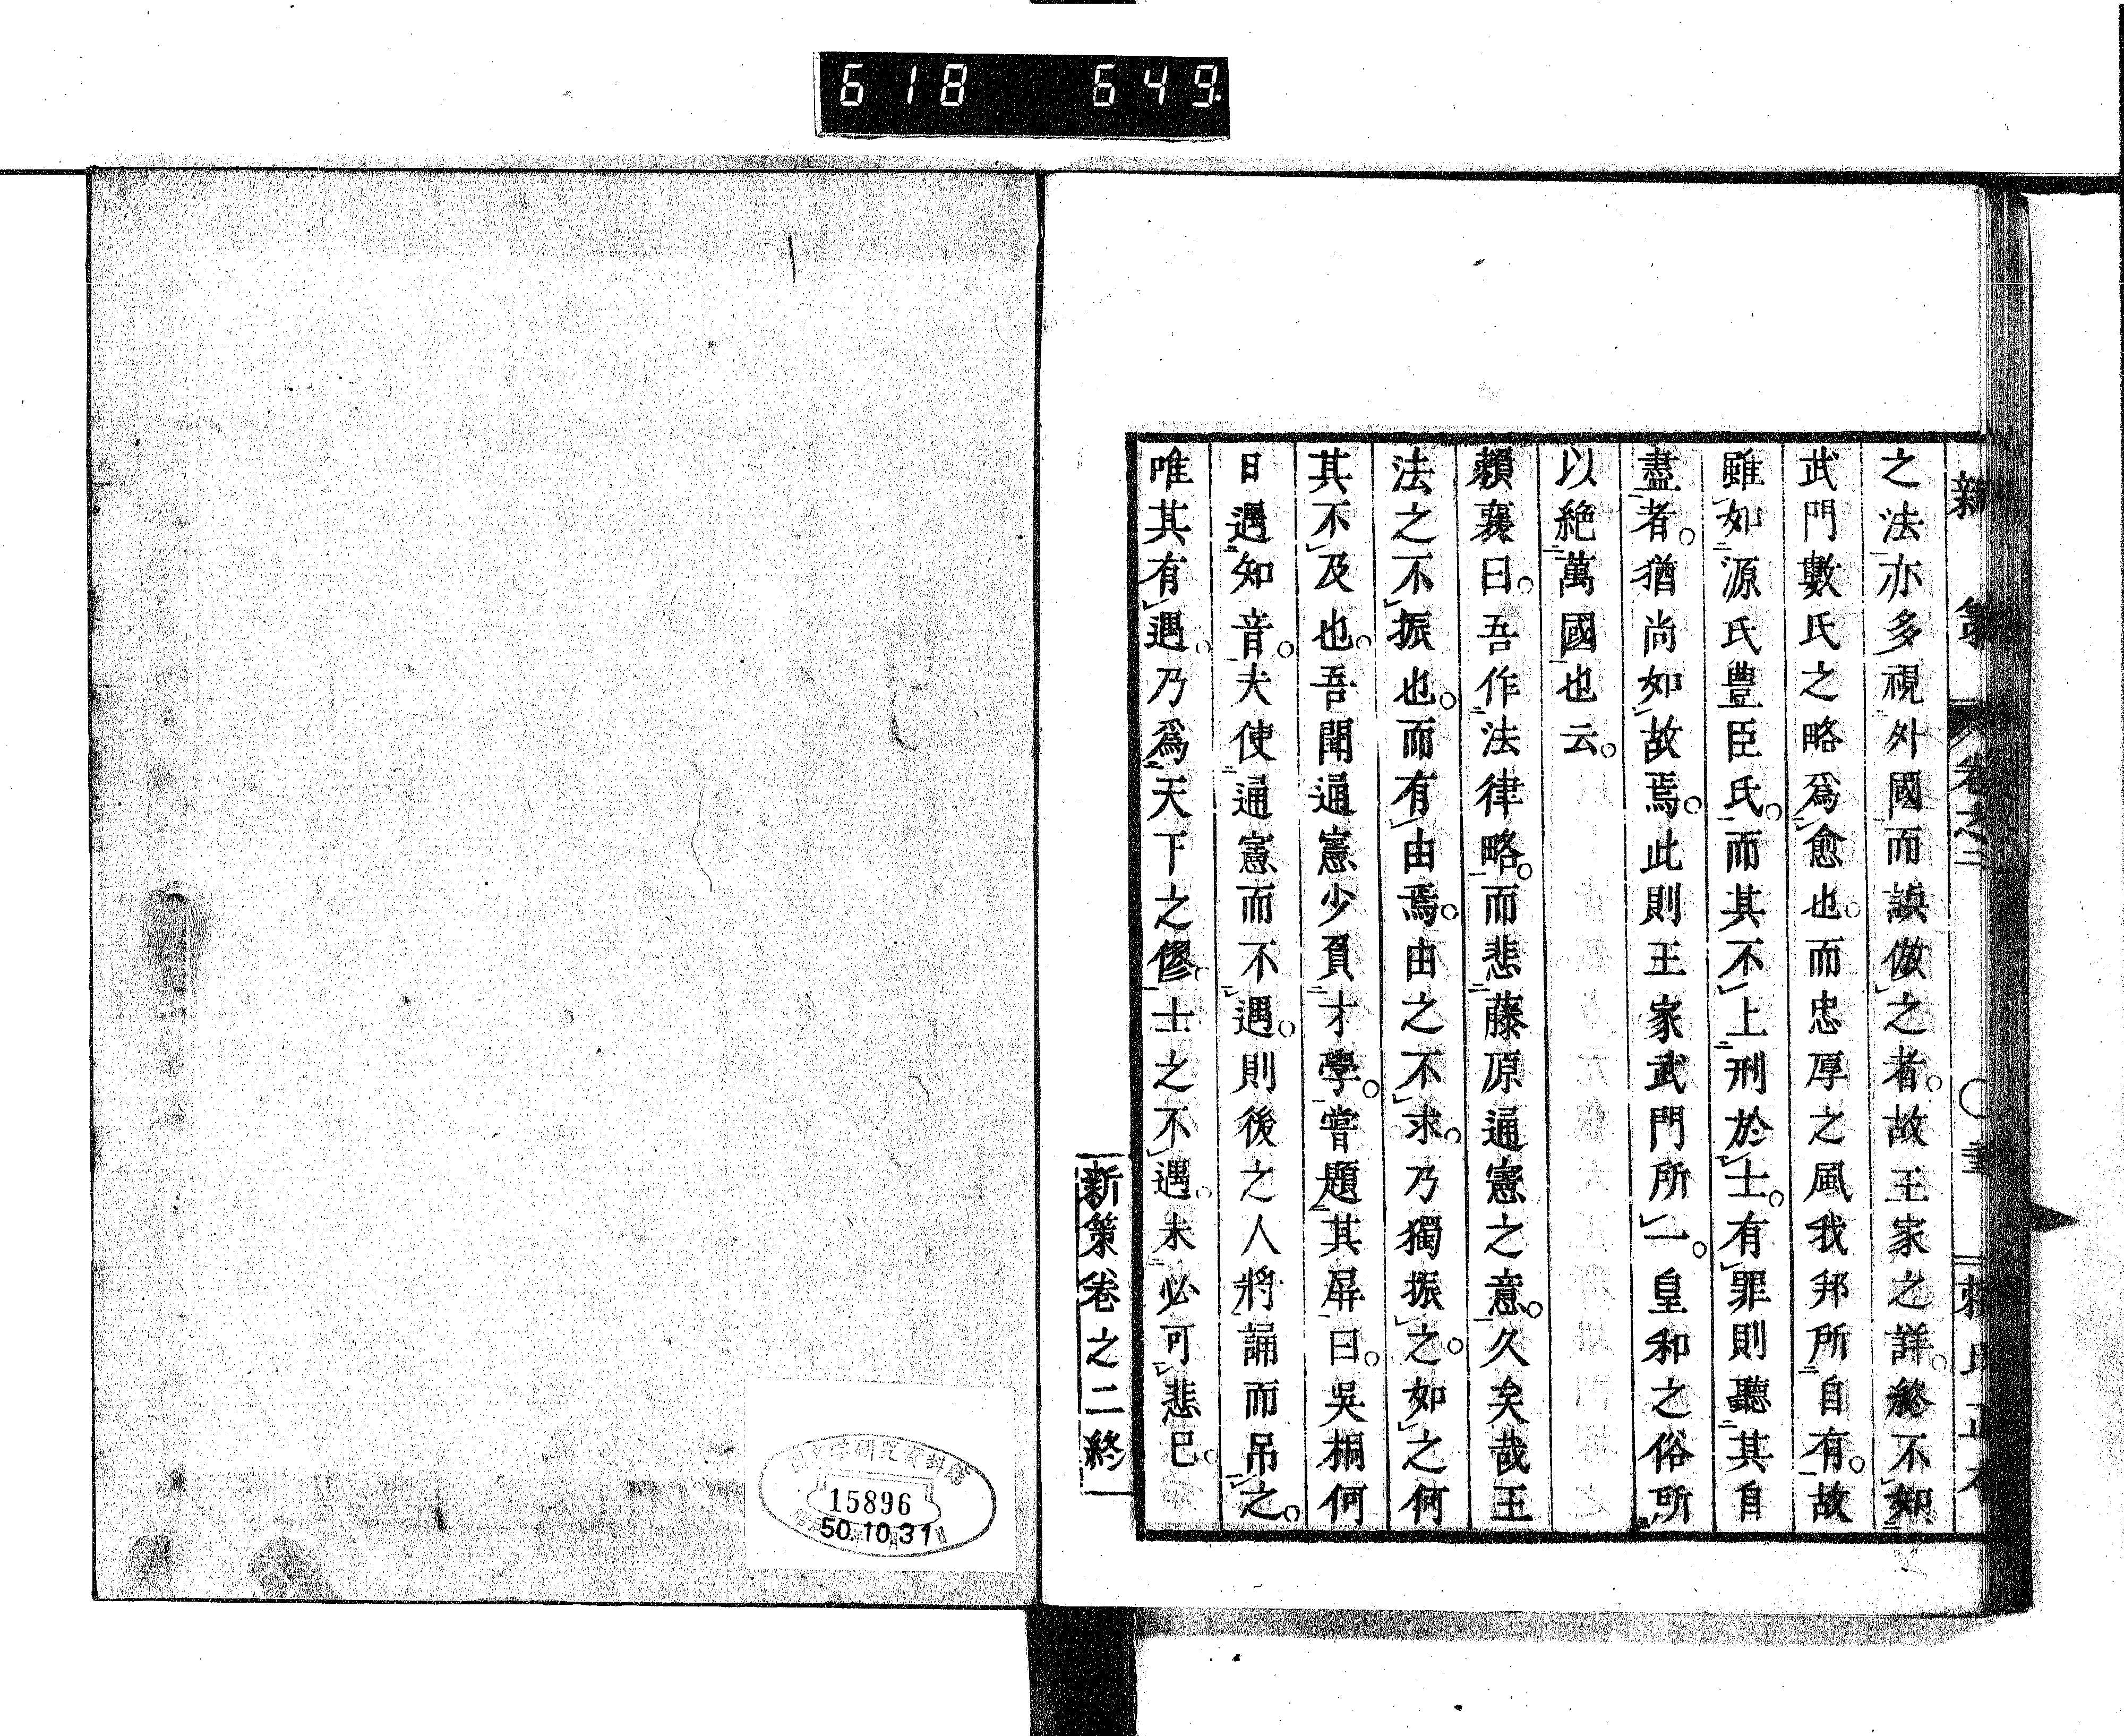 618 649.
新策 卷之二
之法亦多視外國而誤倣之者。故王家之詳。終不如
武門數氏之略爲愈也。而忠厚之風我邦所自有。故
雖如源氏豊臣氏。而其不上刑於士。有罪則聽其自
盡者。猶尚如故焉。此則王家武門所一。皇和之俗所
以絶萬國也云。
賴襄曰。吾作法律略。而悲藤原通憲之意。久矣哉王
法之不振也。而有由焉。由之不求。乃獨振之。如之何
其不及也。吾聞通憲少負才學。嘗題其屏曰。吳桐何
日遇知音。夫使通憲而不遇。則後之人將誦而吊之。
唯其有遇。乃爲天下之僇。士之不遇。未必可悲已。
新策卷之二終
15896
50.10.31